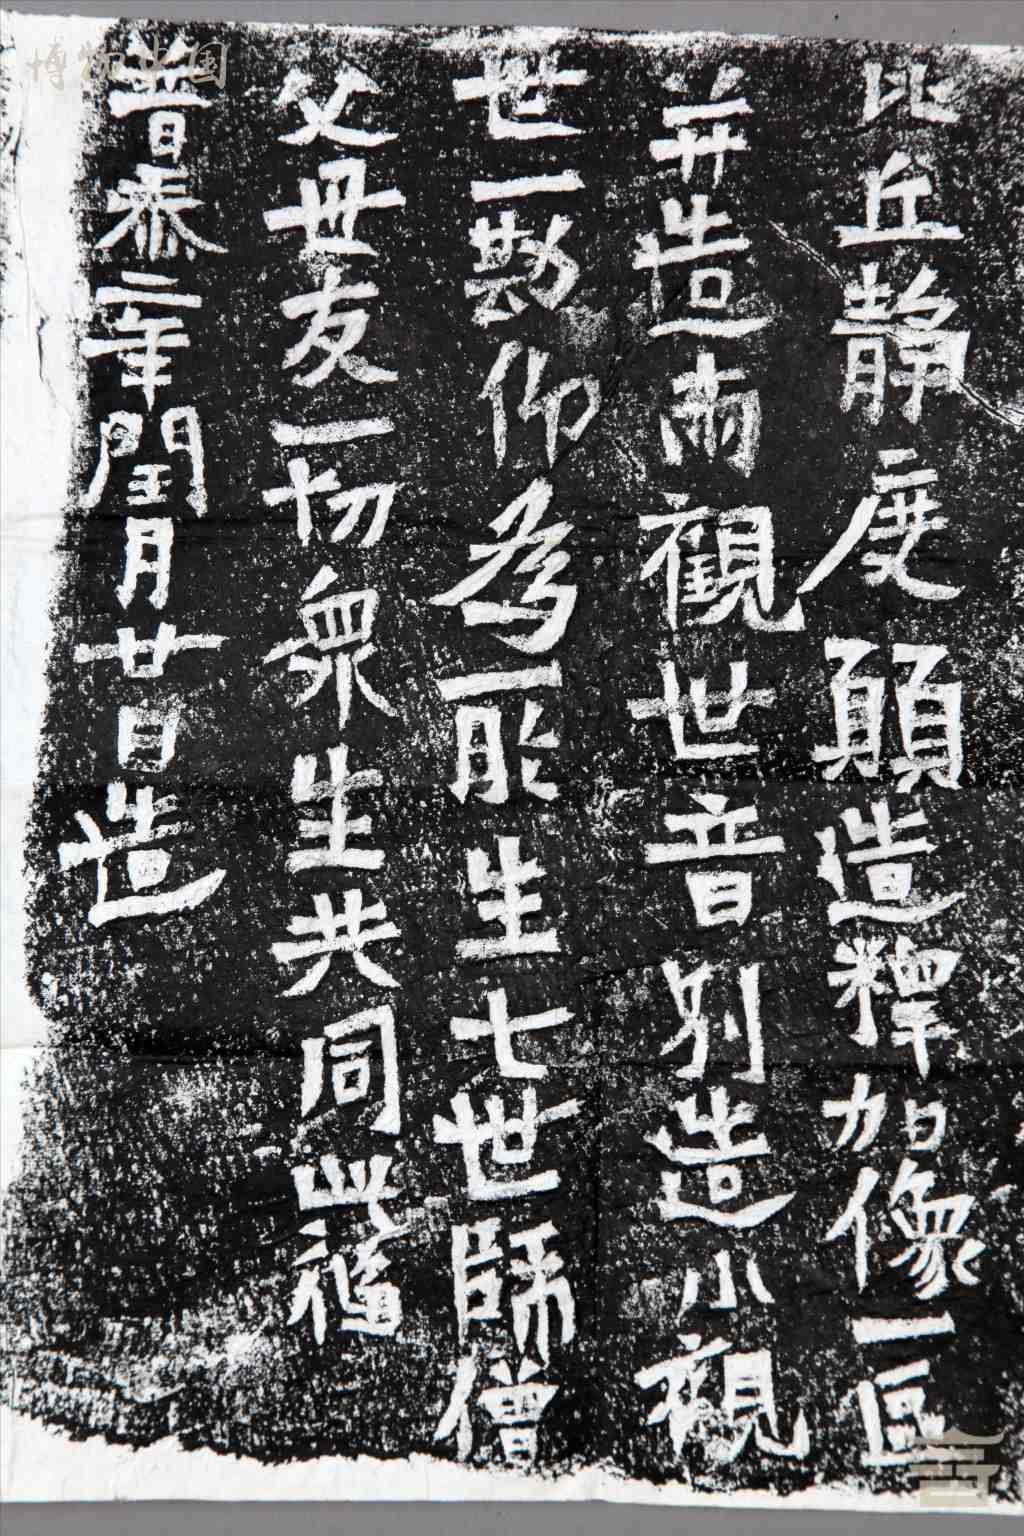 比丘静度願造釋加像一區
并造兩觀世音別造小觀
世一勘仰為所生七世師僧
父母友一切衆生共同此福
普泰二年閏月廿日造
博物中国